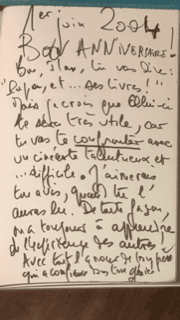 1er
juin 2004
BON ANNIVERSAIRE !
Bon, tu vas dire :
"Papa, et... ses livres !"
Mais je crois que celui-ci
te sera très utile, car
tu vas te confronter avec
un cinéaste talentueux et
... difficile. J'aimerais
ton avis, quand tu l'
auras lu. De toute façon,
on a toujours à apprendre
de l'expérience des autres.
Avec tout l'amour de ton père
qui a confiance dans ton